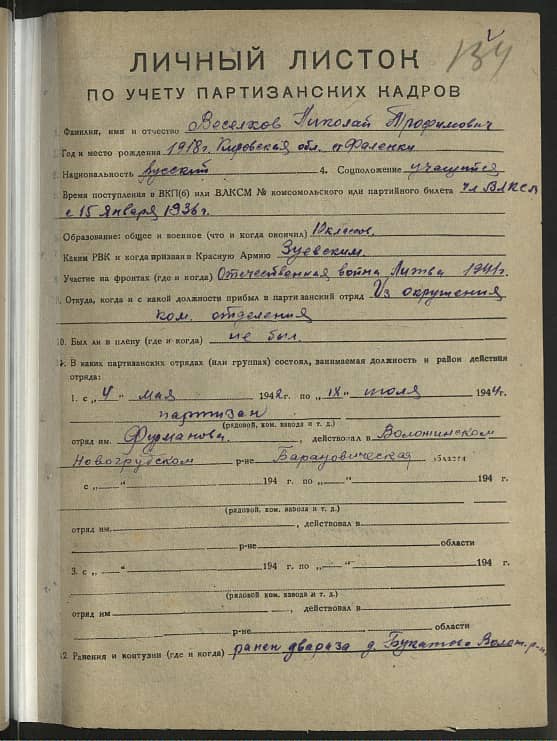 134
ЛИЧНЫЙ ЛИСТОК
ПО УЧЕТУ ПАРТИЗАНСКИХ КАДРОВ
Фамилия, имя и отчество Веселков Николай Трофимович
Год и место рождения 1918г. Кировская обл. п Фаленки
Национальность русский 4. Соцположение учащийся
Время поступления в ВКП(б) или ВЛКСМ № комсомольского или партийного билета чл ВЛКСМ
с 15 января 1936г.
Образование: общее и военное (что и когда окончил) 10 классов.
Каким РВК и когда призван в Красную Армию Зуевским.
Участие на фронтах (где и когда) Отечественная война Литва 1941г.
Откуда, когда и с какой должности прибыл в партизанский отряд Из окружения
ком. отделения
10. Был ли в плену (где и когда) не был.
11. В каких партизанских отрядах (или группах) состоял, занимаемая должность и район действия
отряда:
1. с „4" мая 1942г. по „IX" июля 1944г.
партизан
(рядовой, ком. взвода и т. д.)
отряд им. Фурманова, действовал в Воложинском
Новогрудском р-не Барановическая области
с „ " 194 г. по „ " 194 г.
(рядовой, ком. взвода и т. д.)
отряд им. , действовал в
р-не области
3. с „ " 194 г. по „ " 194 г.
(рядовой, ком. взвода и т. д.)
отряд им. , действовал в
р-не области
12 Ранения и контузии (где и когда) ранен двараза д. Волож. р-н.